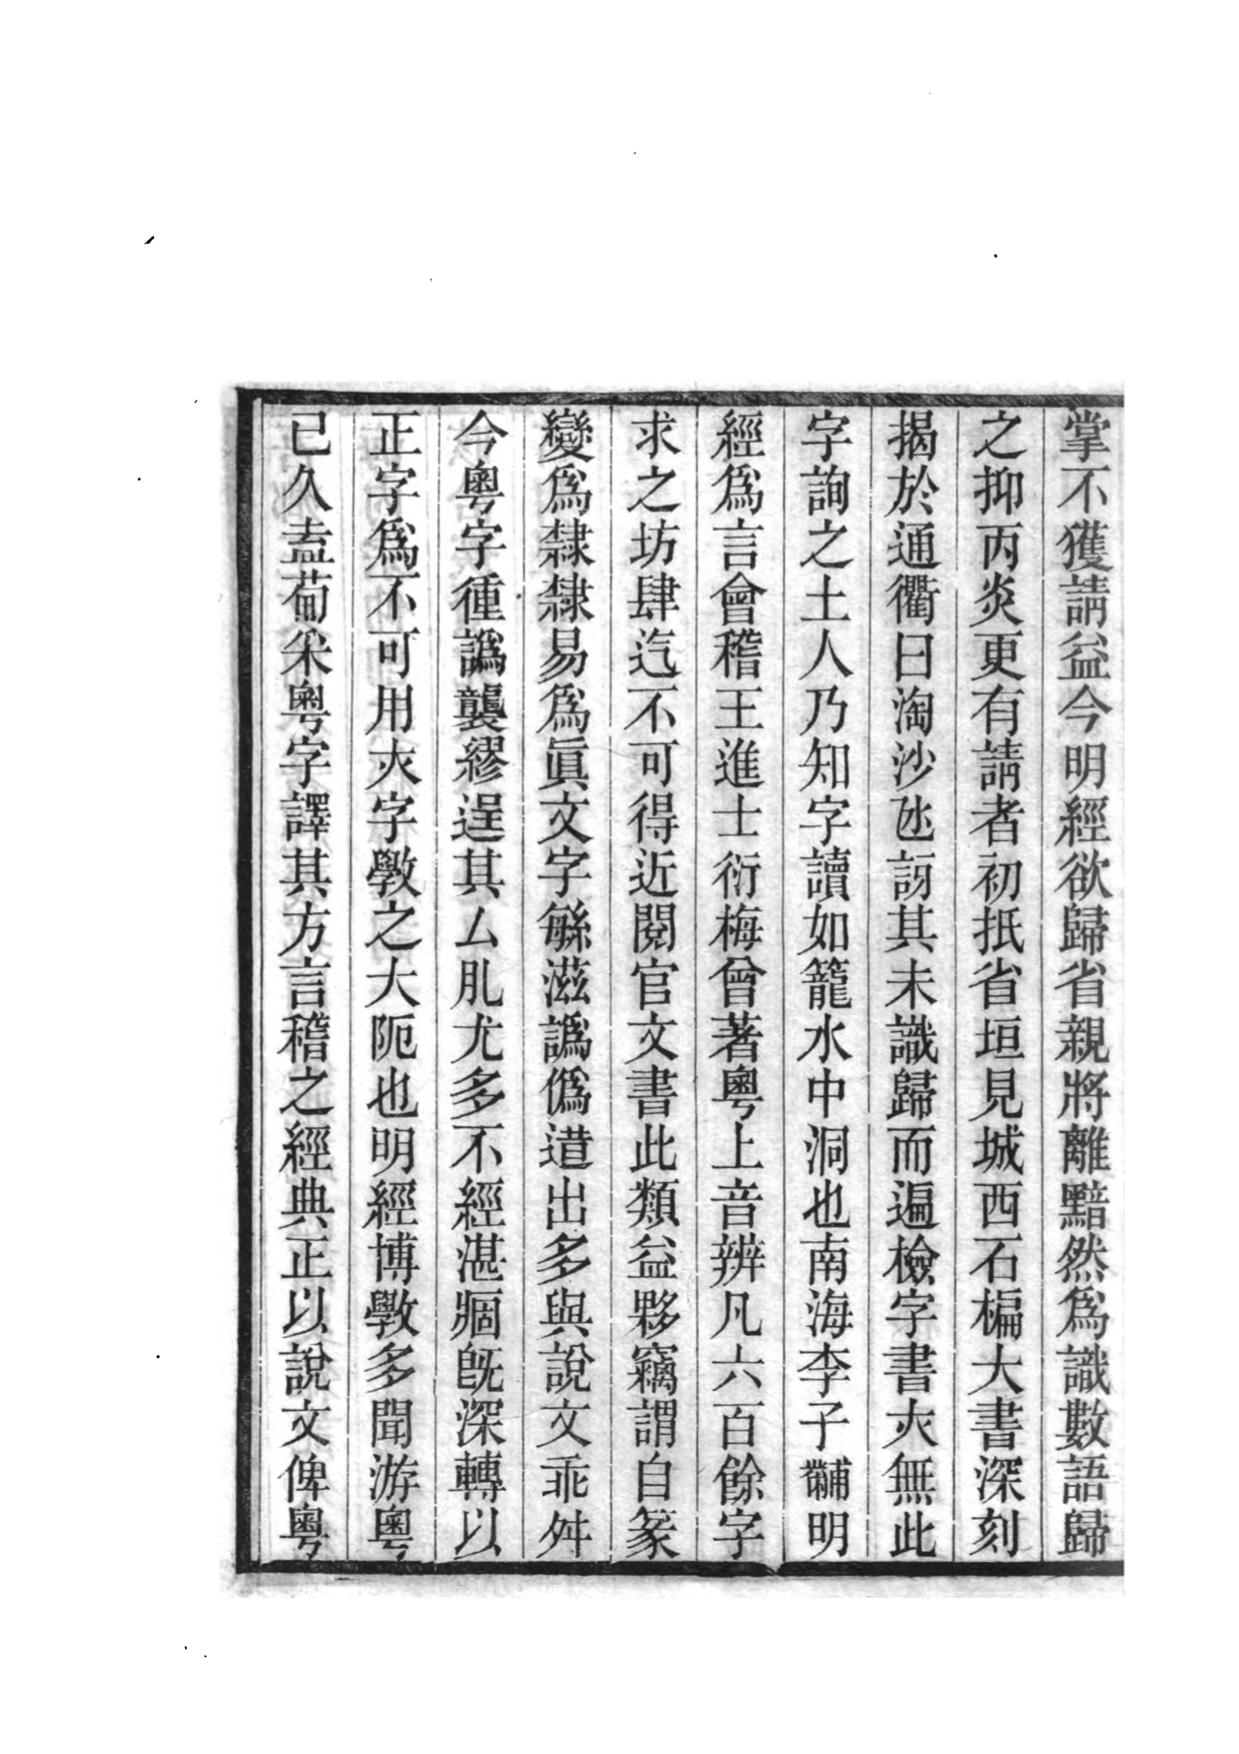 掌不獲請益今明經欲歸省親將離黯然爲識數語歸
之抑丙炎更有請者初抵省垣見城西石楄大書深刻
揭於通衢曰淘沙氹訝其未識歸而遍檢字書亦無此
字詢之土人乃知字讀如籠水中洞也南海李子黼明
經爲言會稽王進士衍梅曾著粵上音辨凡六百餘字
求之坊肆汔不可得近閱官文書此類益夥竊謂自篆
變爲隸隸易爲眞文字緐滋譌僞遺出多與說文乖舛
今粵字種譌襲繆逞其厶肊尤多不經湛痼旣深轉以
正字爲不可用亦字斅之大阨也明經博斅多聞游粵
已久盍蒐采粵字譯其方言稽之經典正以說文俾粵